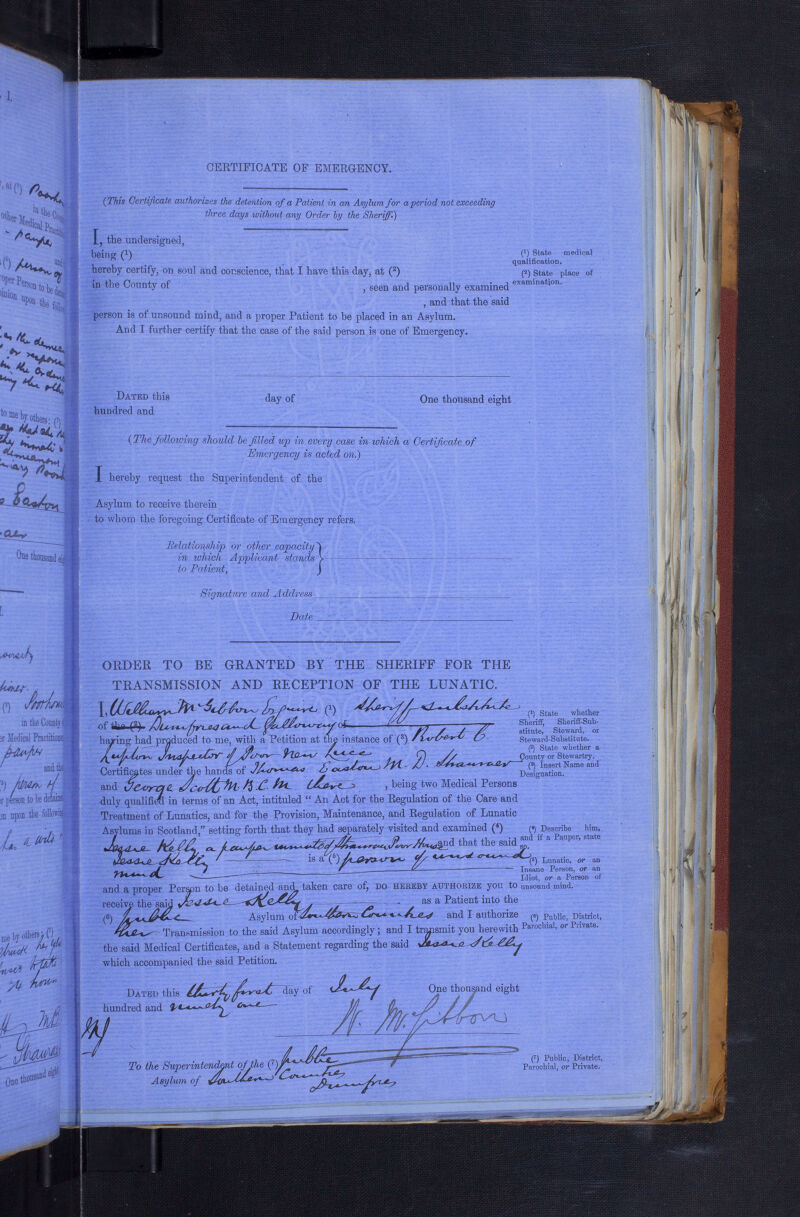 CERTIFICATE OF EMERGENCY.
(This Certificate authorizes the detention of a Patient in an Asylum for a period not exceeding
three days without any Order by the Sheriff.)
I, the undersigned,
being (¹)
hereby certify, on soul and conscience, that I have this day, at (²)
in the County of , seen and personally examined
, and that the said
person is of unsound mind, and a proper Patient to be placed in an Asylum.
And I further certify that the case of the said person is one of Emergency.
(¹) State medical
qualification.
(²) State place of
examination.
DATED this day of One thousand eight
hundred and
(The following should be filled up in every case in which a Certificate of
Emergency is acted on.)
I hereby request the Superintendent of the
Asylum to receive therein
to whom the foregoing Certificate of Emergency refers.
Relationship or other capacity
in which Applicant stands
to Patient,
Signature and Address
Date
ORDER TO BE GRANTED BY THE SHERIFF FOR THE
TRANSMISSION AND RECEPTION OF THE LUNATIC.
I, William McGibbon Esquire (¹) Sheriff Substitute
of the (²) Dumfries and Galloway of
having had produced to me, with a Petition at the instance of (³) Robert C.
Inspector of Poor New Luce
Certificates under the hands of Thomas Easton M.D. Stranraer
and George Scott M.B.C.M. there , being two Medical Persons
duly qualified in terms of an Act, intituled "An Act for the Regulation of the Care and
Treatment of Lunatics, and for the Provision, Maintenance, and Regulation of Lunatic
Asylums in Scotland," setting forth that they had separately visited and examined (⁴)
Jessie Kelly, a pauper inmate of Stranraer Poor House and that the said
Jessie Kelly is a (⁵) person of unsound
mind
and a proper Person to be detained and taken care of, DO HEREBY AUTHORIZE you to
receive the said Jessie Kelly as a Patient into the
(⁶) public Asylum of Southern Counties and I authorize
her Transmission to the said Asylum accordingly; and I transmit you herewith
the said Medical Certificates, and a Statement regarding the said Jessie Kelly
which accompanied the said Petition.
(¹) State whether
Sheriff, Sheriff-Sub-
stitute, Steward, or
Steward-Substitute.
(²) State whether a
County or Stewartry.
(³) Insert Name and
Designation.
(⁴) Describe him,
and if a Pauper, state
so.
(⁵) Lunatic, or an
Insane Person, or an
Idiot, or a Person of
unsound mind.
(⁶) Public, District,
Parochial, or Private.
DATED this thirty first day of July One thousand eight
hundred and ninety one
W. McGibbon
To the Superintendent of the (⁷) public
Asylum of Southern Counties
Dumfries
(⁷) Public, District,
Parochial, or Private.